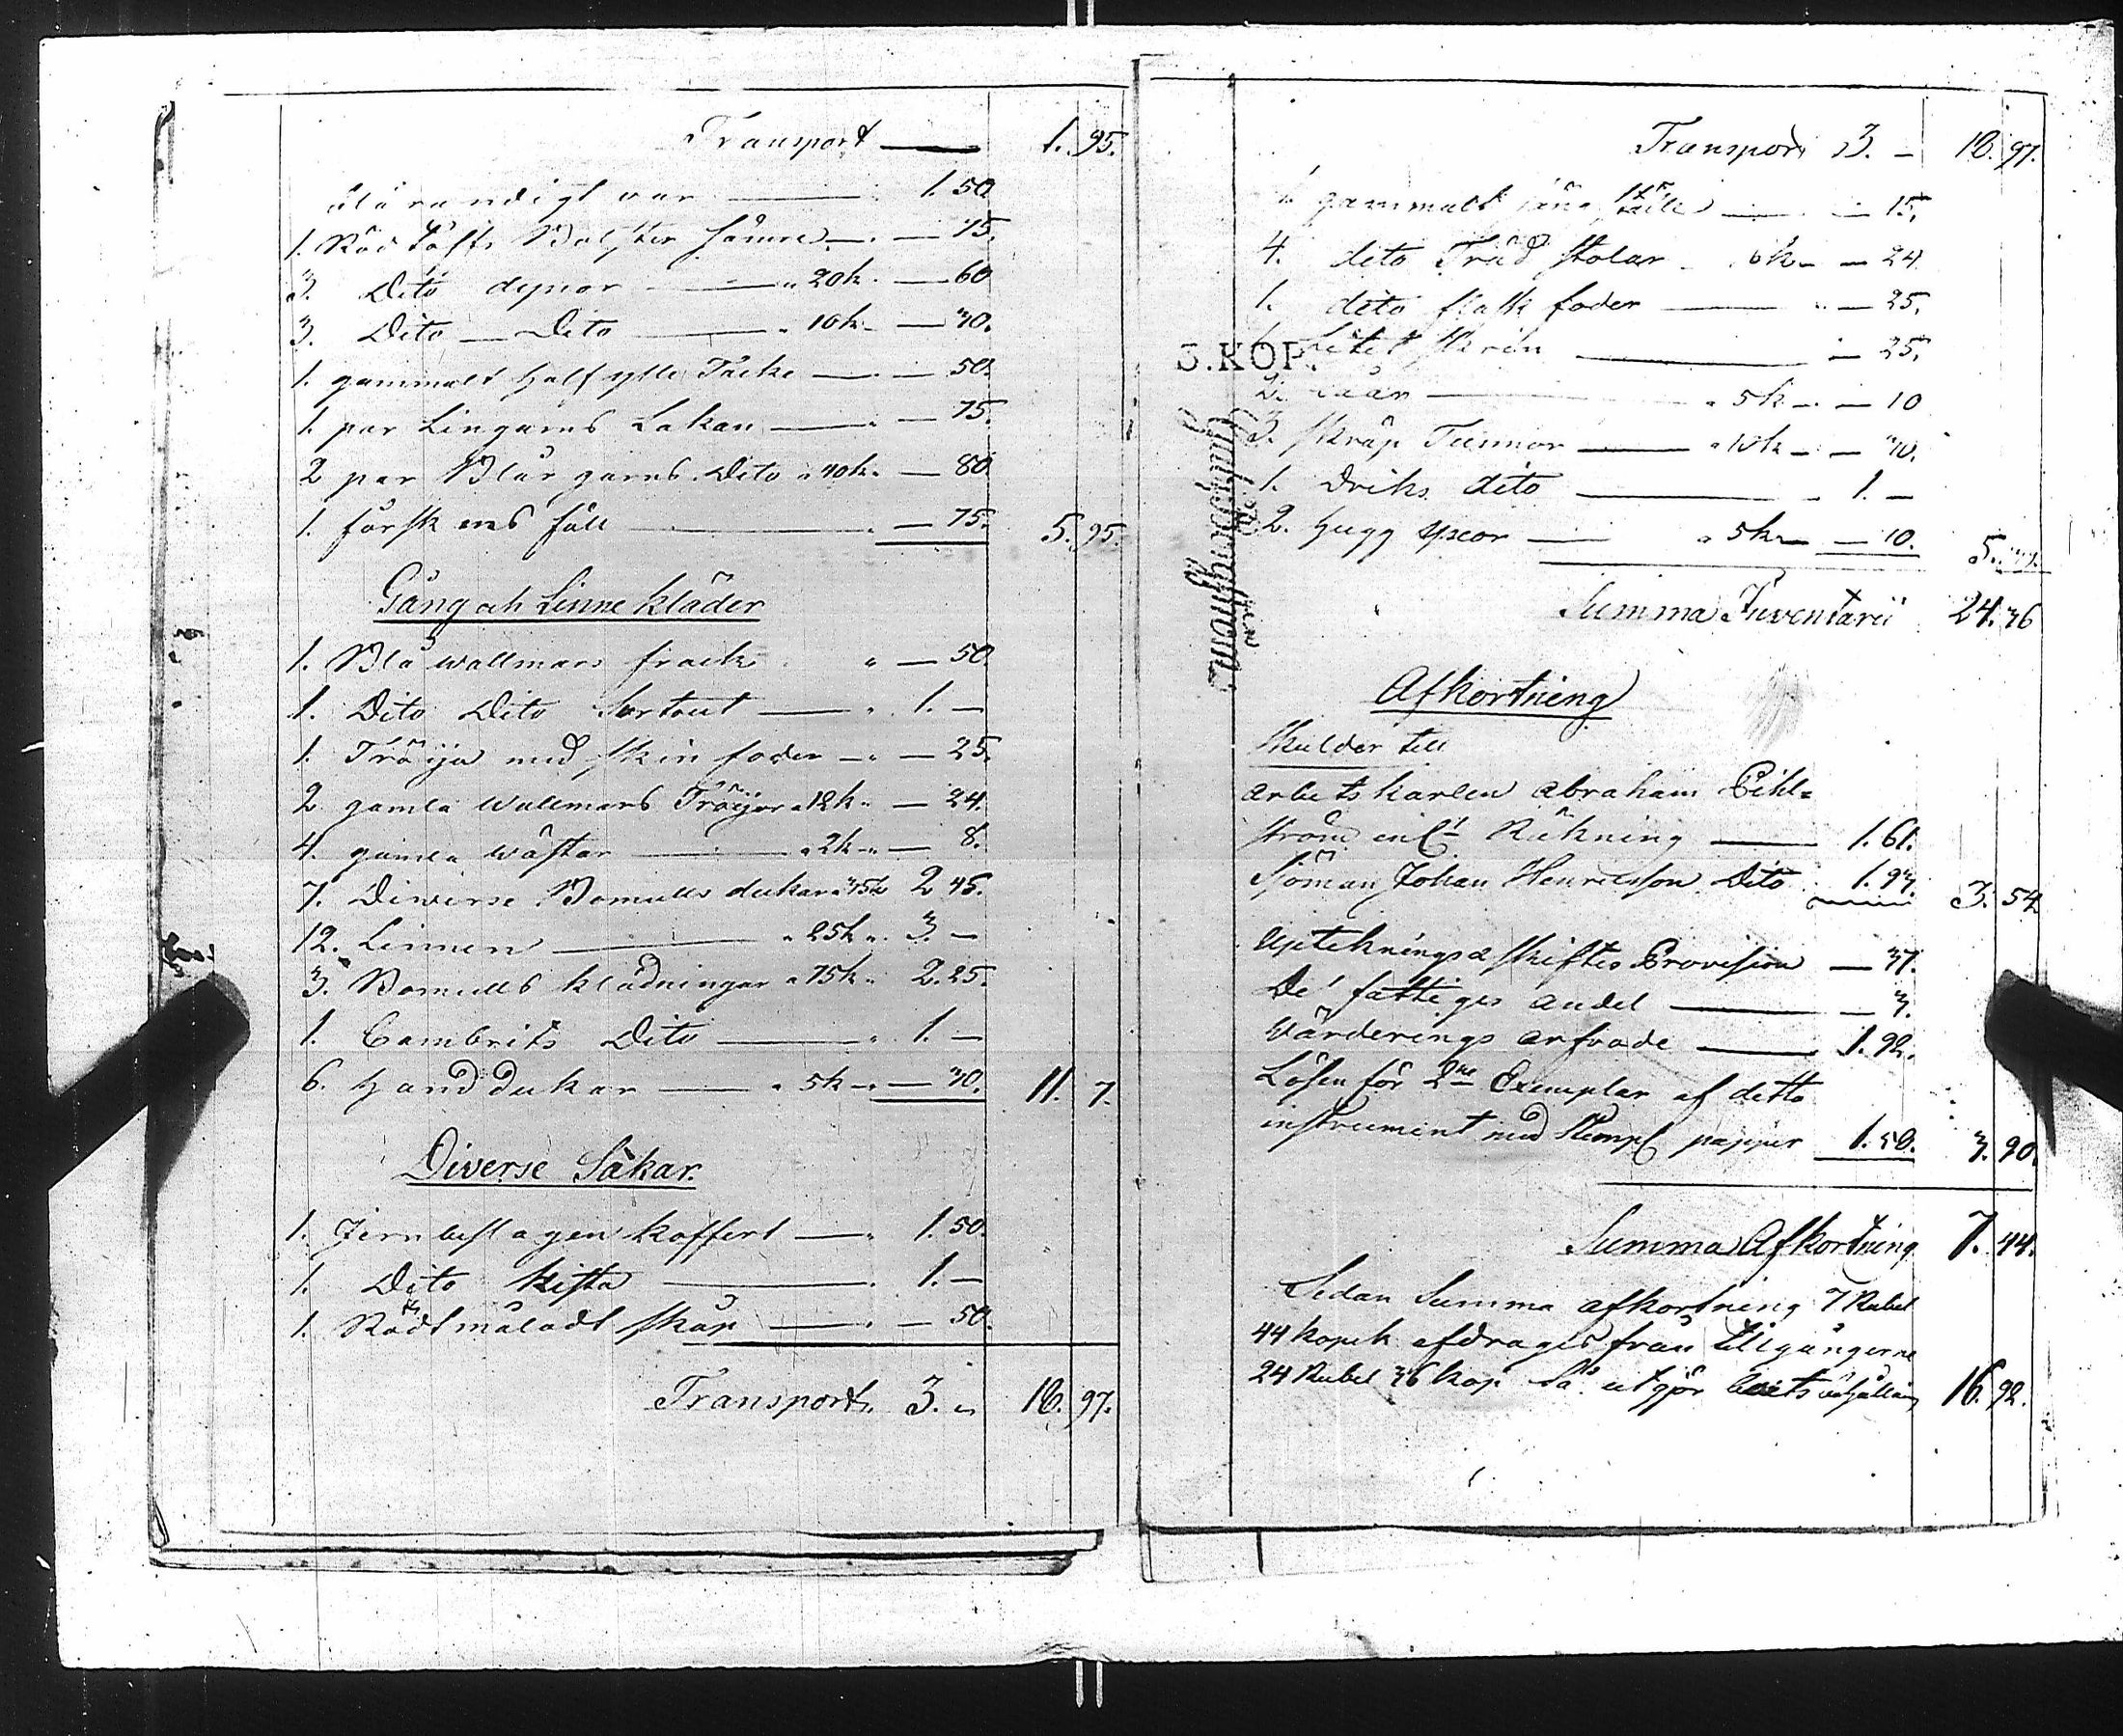 Transport — 1. 95.
blå randigt var — 1. 50
1. Röd Töffts Bolster Hämre — 75.
3. Dito dynor — " 20 k. — 60
3. Dito — Dito — " 10 k. — 30.
1. gammalt Half ylle Täcke — 50.
1. par Lingarns Lakan — 75.
2 par Blår garns Dito " 40 k. — 80.
1. fårskens fäll — 75. 5. 95.
Gång och Linne kläder
1. Blå wallmars frack " — 50.
1. Dito Dito Sortout — " 1. —
1. Tröija med skin foder — " — 25.
2 gamla Wallmars Tröijor " 12 k " — 24.
4. gamla wästar — " 2 k " — 8.
7. Diverse Bomulls dukar " 35 k 2 45.
12. Linnen — " 25 k " 3. —
3. Bomulls klädningar " 75 k " 2. 25.
1. Cambrits Dito — " 1. —
6. Handdukar — " 5 k " — 30. 11. 7.
Diverse Saker.
1. Jernbeslagen Koffert — " 1. 50.
1. Dito Kista — 1. —
1. Rödt måladt skåp — " — 50.
Transport. 3. " 18. 97.
Transport 3. — 18. 97.
1. gammalt — 15.
4. dito Träd stolar 6 k — — 24.
1. dito flask foder — " — 25.
1. Litet skrin — 25.
3. KOP.
2. — " 5 k — — 10
3. skräp Tunnor — " 10 k — — 30.
1. Driks dito — 1. —
2. Hugg yxor — " 5 k — — 10. 5. 39.
Summa Inventarii 24. 36
Afkortning
Skulder till
arbetskarlen Abraham Pihl=
ström enl. Räkning — 1. 61.
Sjöman Johan Henricsson Dito 1. 93. 3. 54
Upteknings & Skiftes Provision — 37.
De fattiges andel — 3.
Värderings arfvode — 1. 92.
Lösen för 2ne Exemplar af detta
instrument med Stempl. papper 1. 58. 3. 90.
Summa Afkortning 7. 44.
Sedan Summa afkortning 7 Rubel
44 kopek afdrages från tillgångerne
24 Rubel 36 kop. Så utgör boets behållning 16. 92.